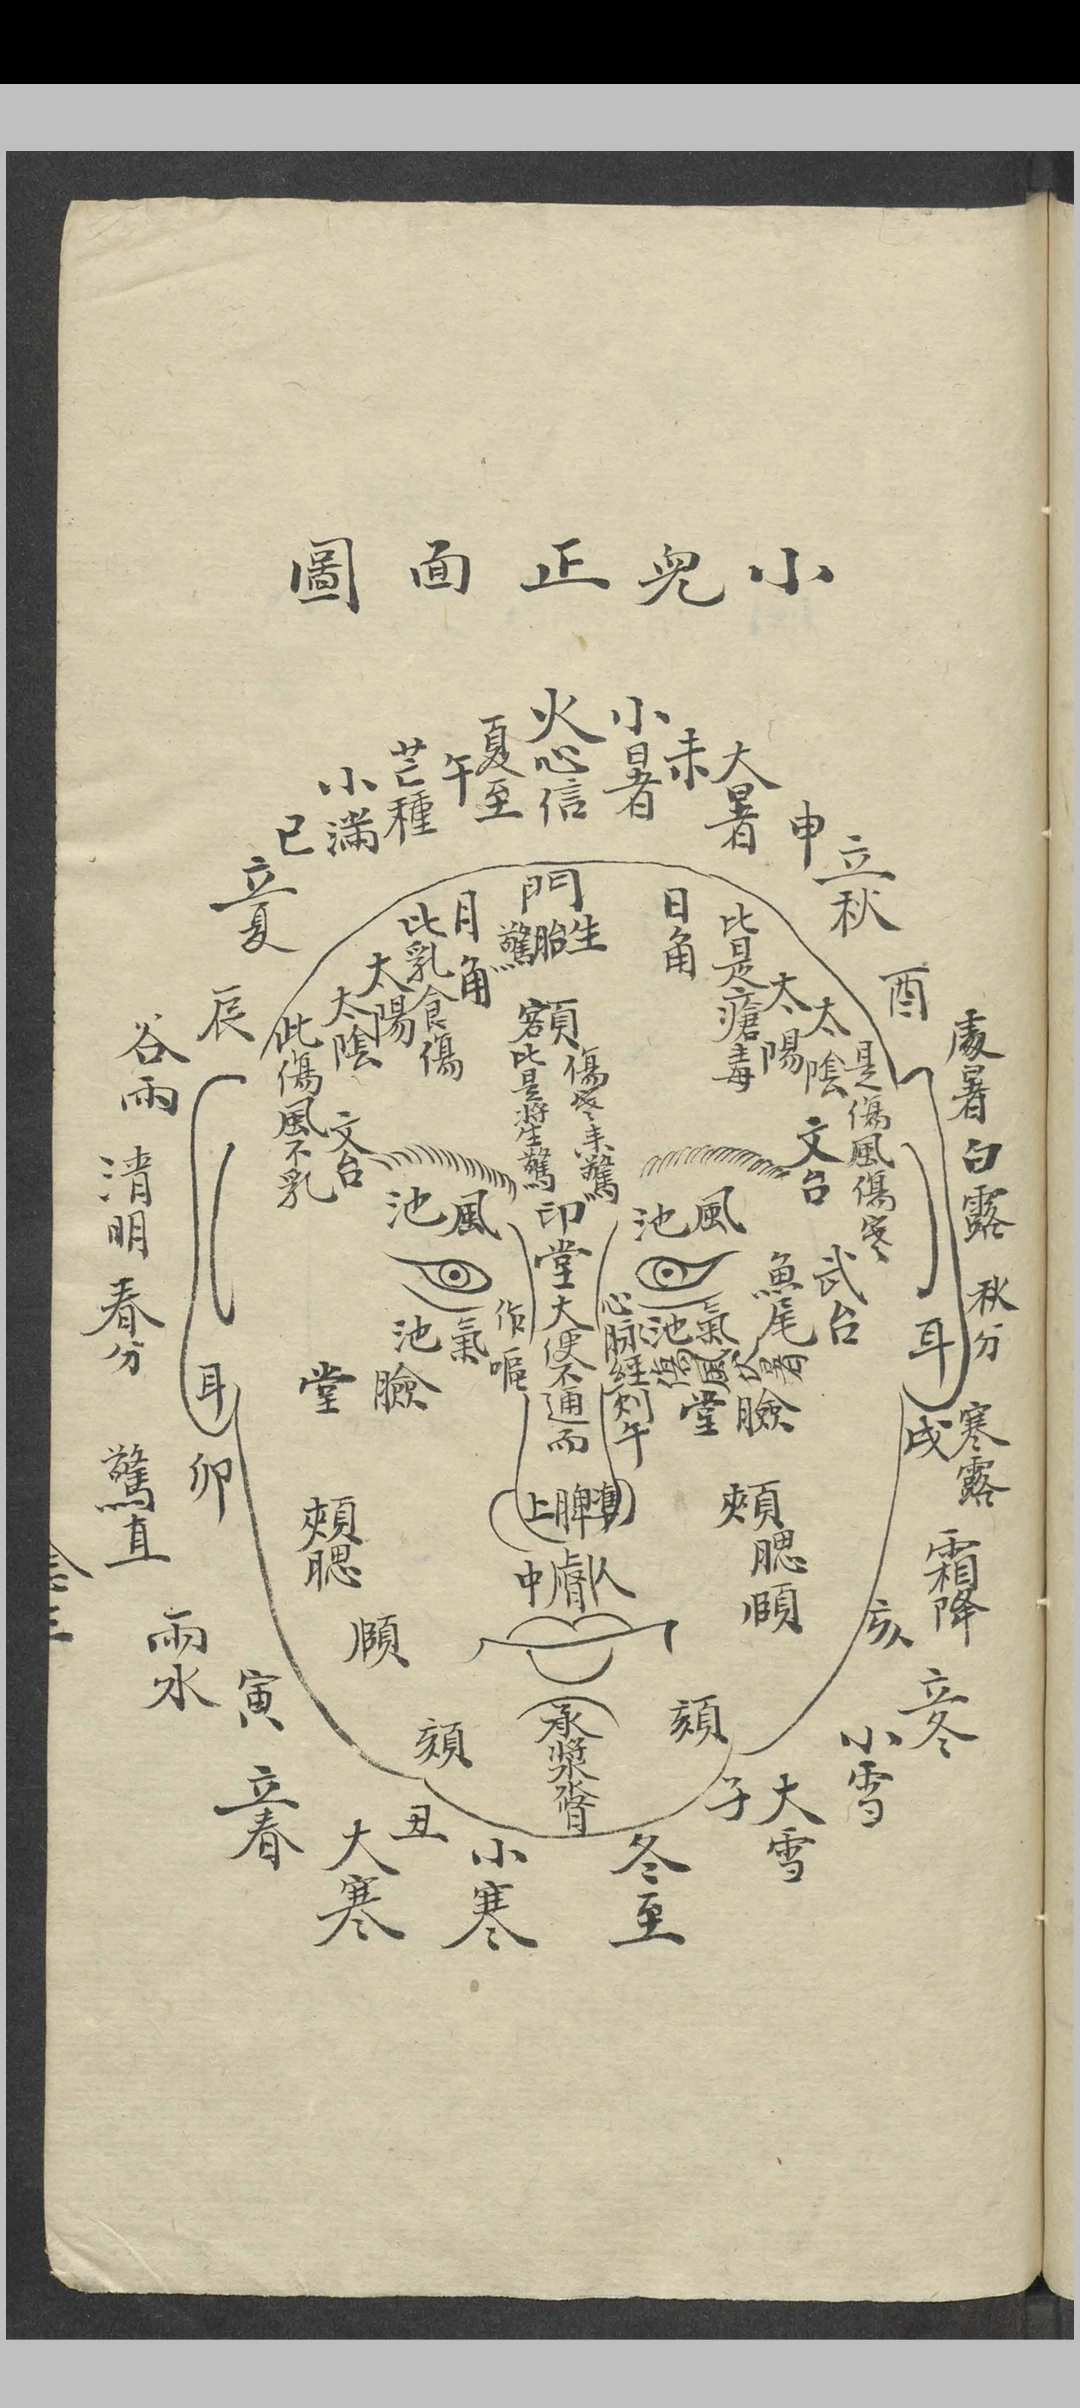 小兒正面圖
火心信
小暑
未
大暑
申
立秋
酉
處暑
白露
秋分
寒露
戌
霜降
亥
立冬
小雪
大雪
子
冬至
小寒
丑
大寒
立春
寅
雨水
驚直
卯
春分
清明
谷雨
辰
立夏
巳
小滿
芒種
午
夏至
門
生胎驚
日角
此是瘡毒
太陽
太陰
是傷風傷寒
文台
武台
魚尾
月角
此乳食傷
太陽
太陰
此傷風不乳
文台
額
傷寒未驚
此是將生驚
印堂
大便不通而
作嘔
心脉經到午
風池
氣池
傷風
臉堂
風池
氣池
臉堂
耳
耳
準
脾
上
中
頰腮
頤
頰腮
頤
頦
頦
承漿